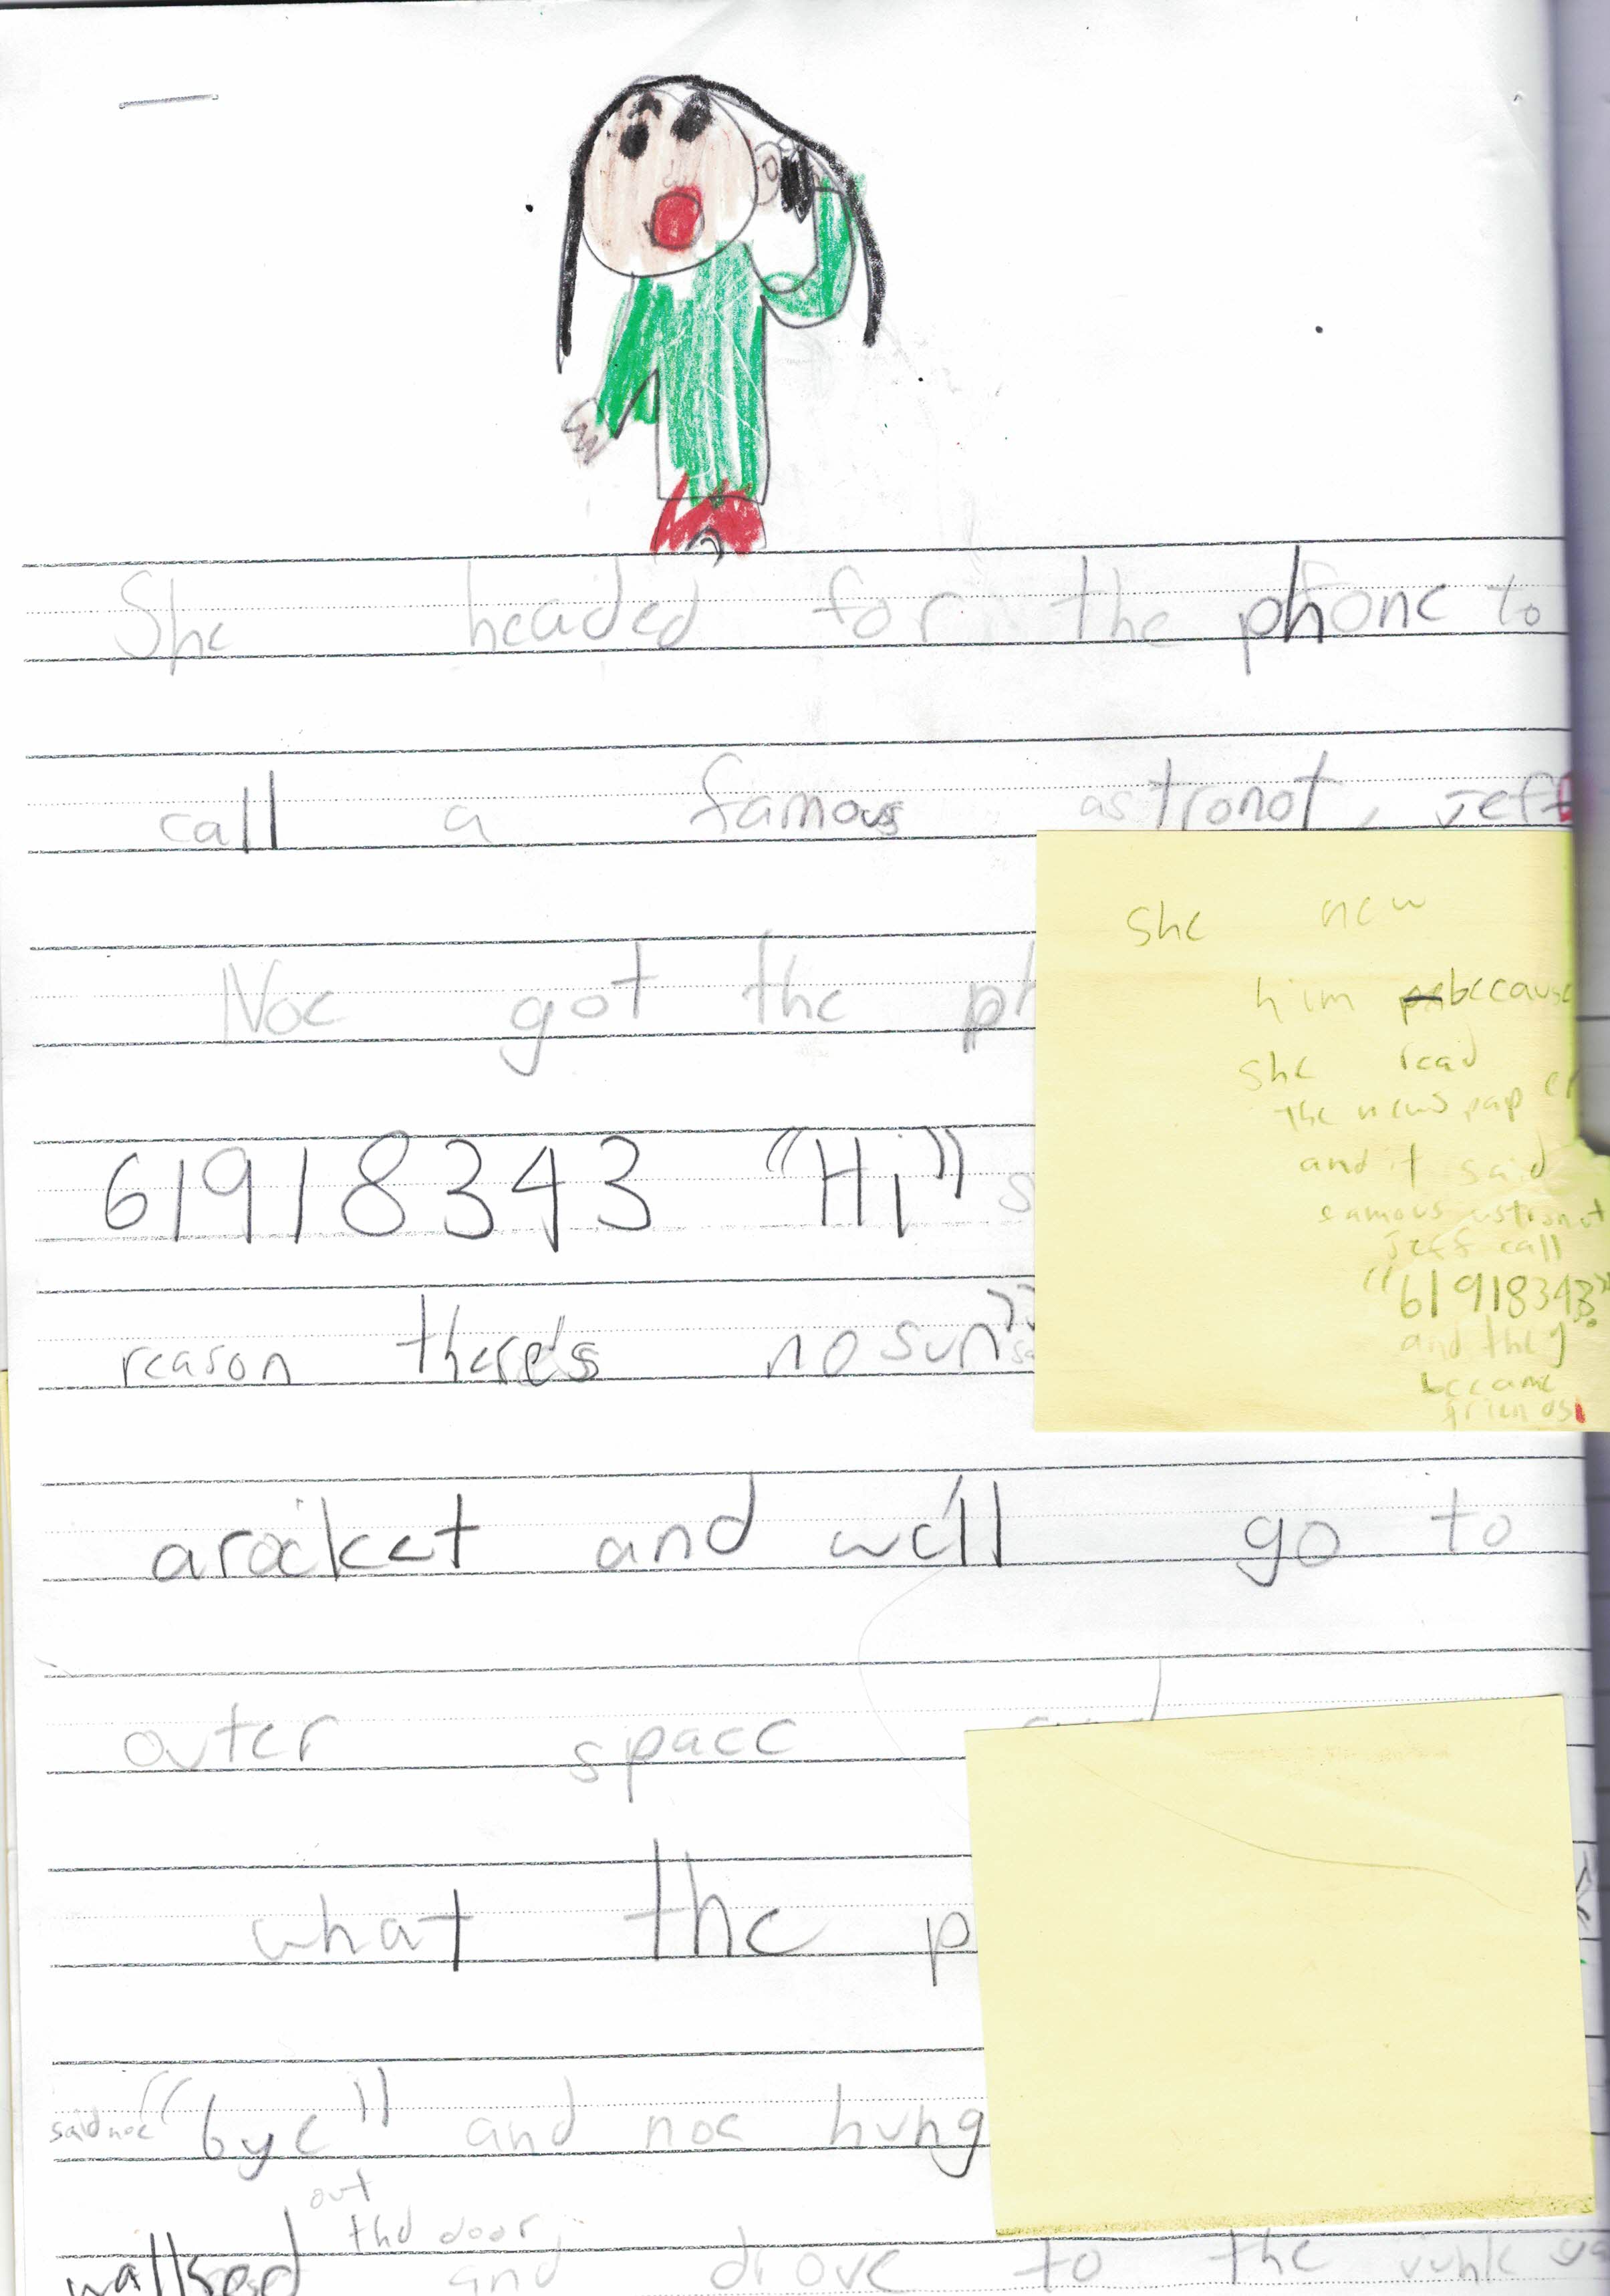 She headed for the phone to
call a famous astronot, Jeff
Noe got the ph
61918343 "Hi" s
reason there's no sun"
arocket and we'll go to
outer space and
what the p
said noe "bye" and noe hung
out
the door,
wallked and drove to the
She new
him because
she read
the news paper
and it said
famous astronot
Jeff call
"61918343"
and they
became
friends!